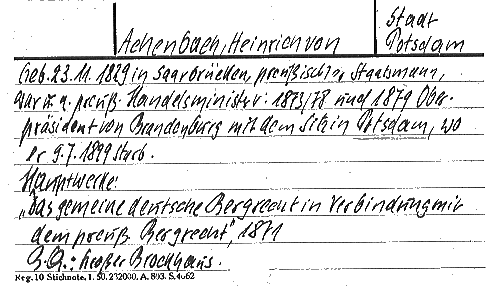 Achenbach, Heinrich von
Stadt
Potsdam
Geb. 23.11.1829 in Saarbrücken, preußischer Staatsmann,
war u.a. preuß. Handelsminister: 1873/78 und 1879 Ober-
präsident von Brandenburg mit dem Sitz in Potsdam, wo
er 9.7.1899 starb.
Hauptwerke:
„Das gemeine deutsche Bergrecht in Verbindung mit
dem preuß. Bergrecht", 1871
Großer Brockhaus.
Reg. 10 Stichnote, 1. 50. 232000. A. 893. S. 4662